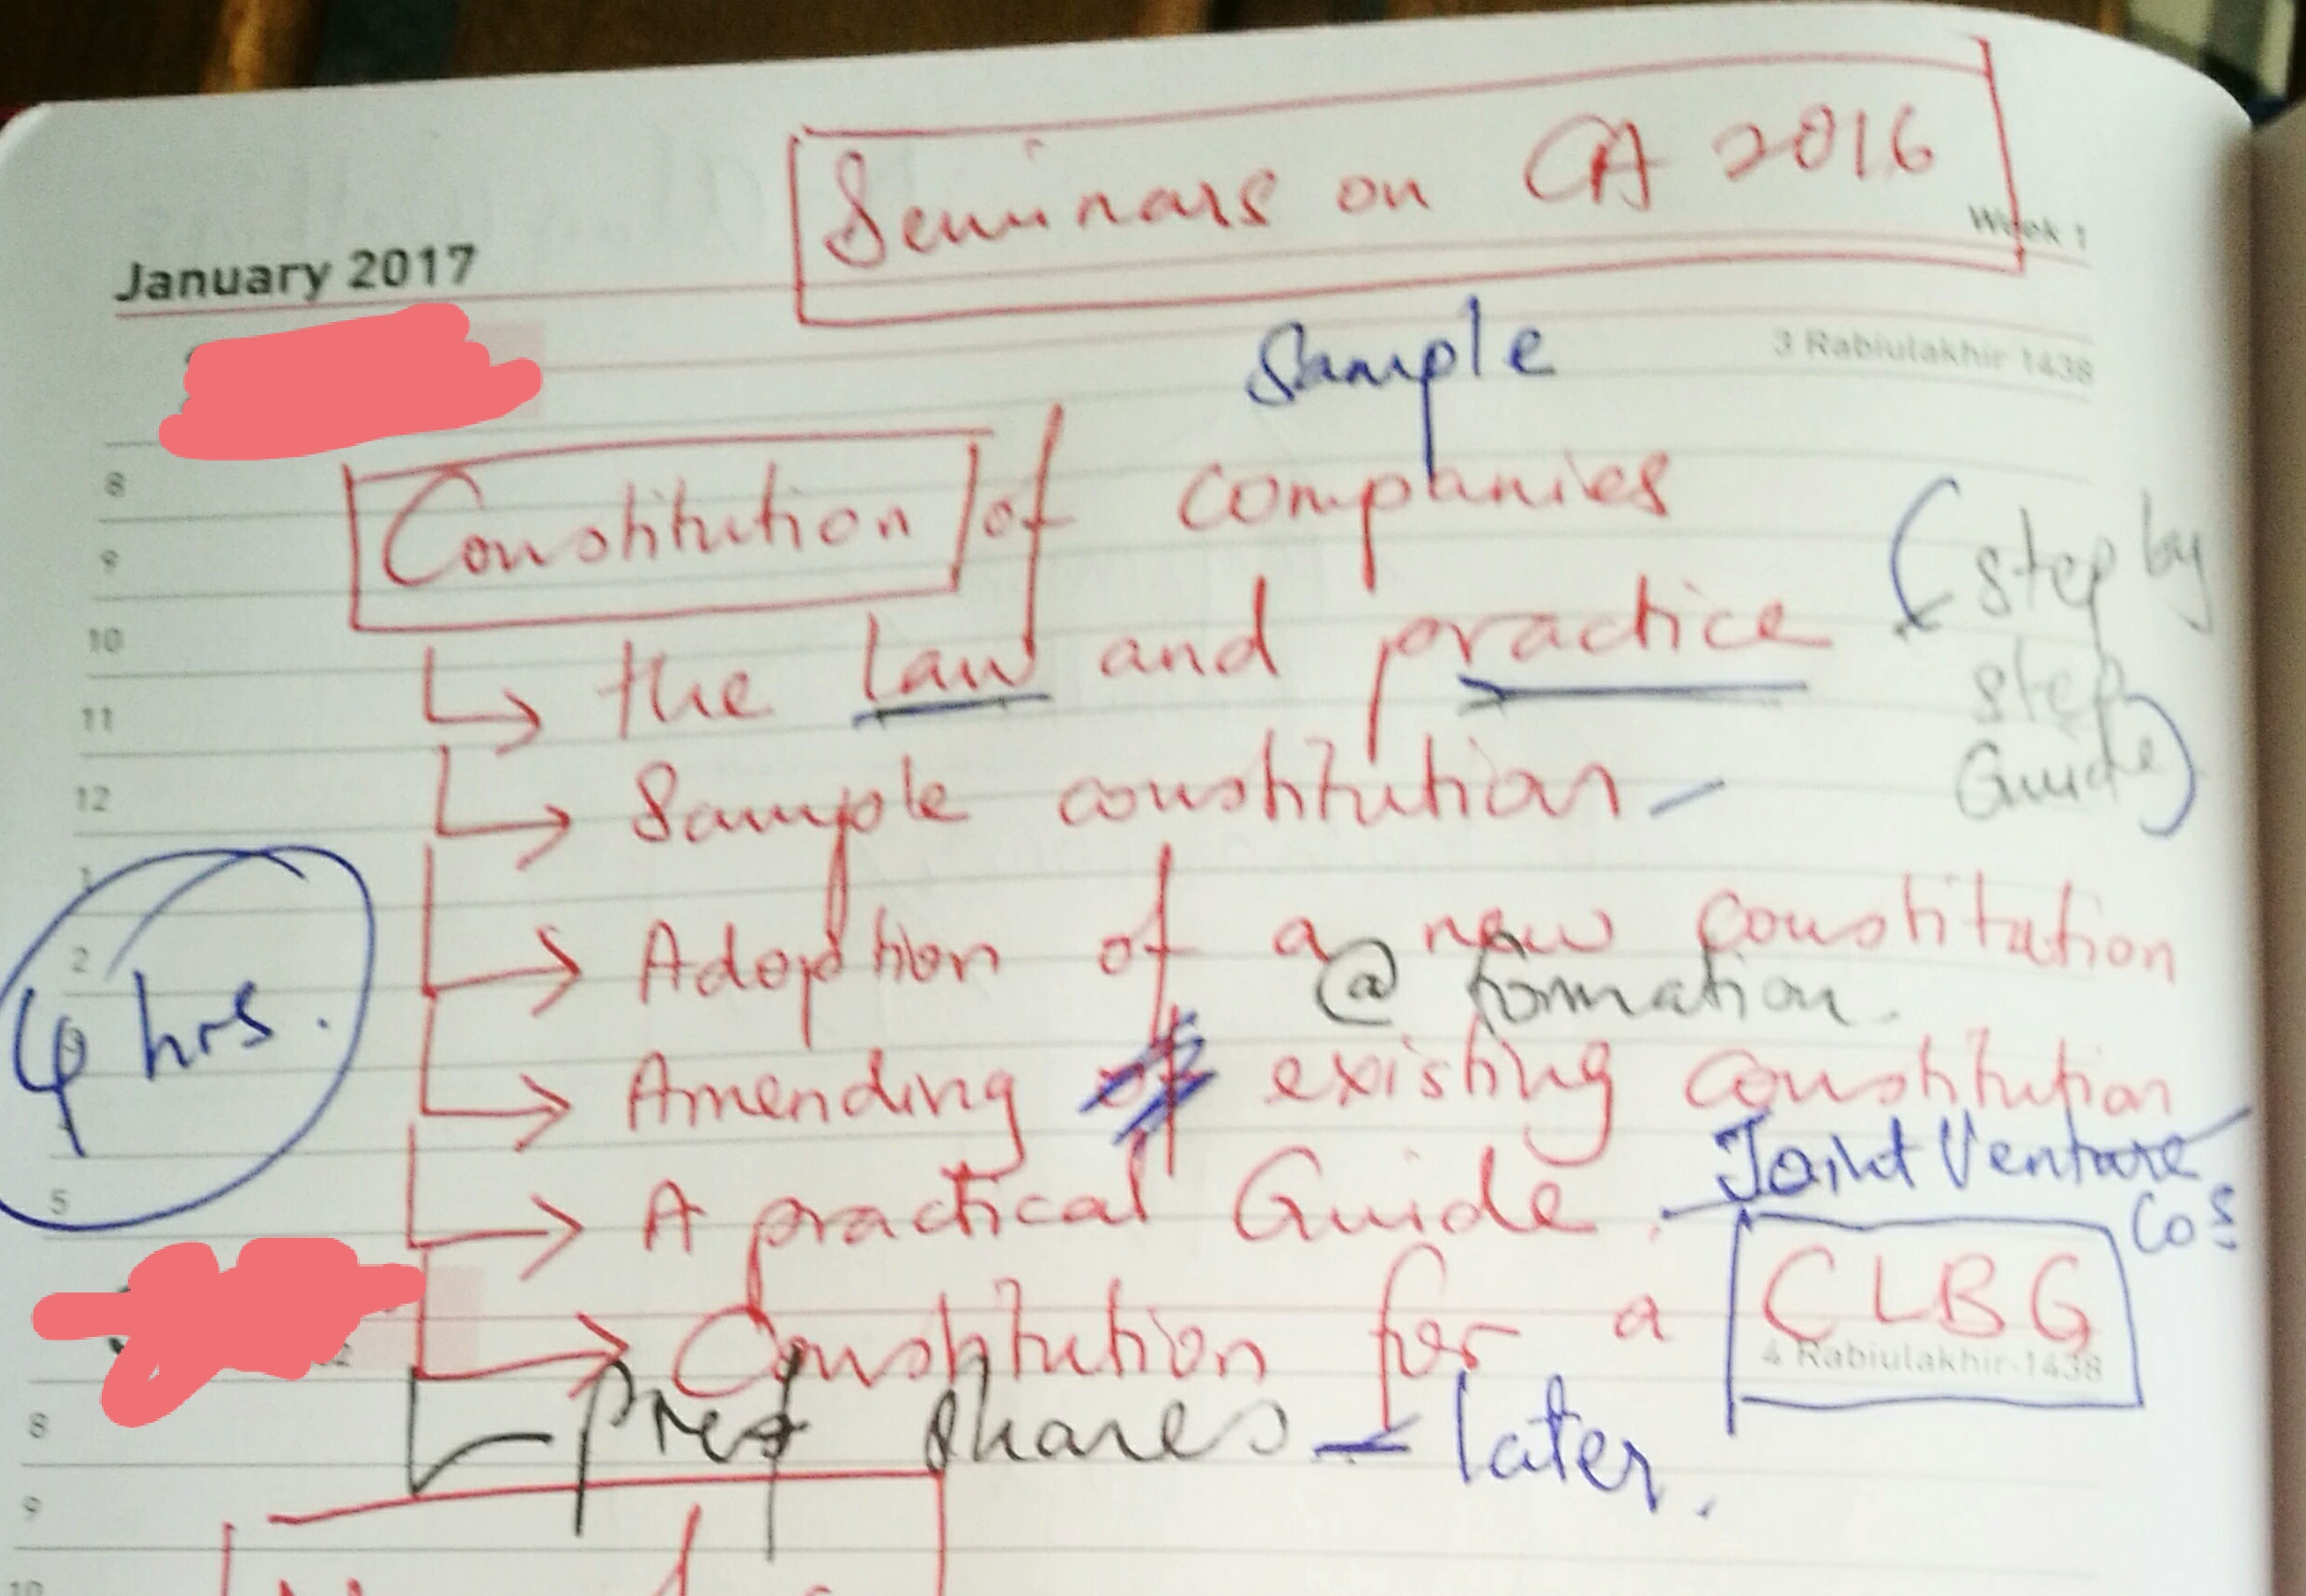 Seminars on CA 2016
Week 1
January 2017
3 Rabiulakhir 1438
Sample
8
Constitution of companies
9
(step by step Guide)
10
the law and practice
11
12
Sample constitution
1
Adoption of a new constitution
2
@ formation.
4 hrs.
Amending existing constitution
Joint Venture Cos
5
A practical Guide.
Constitution for a CLBG
4 Rabiulakhir 1438
8
Pref shares – later.
9
10